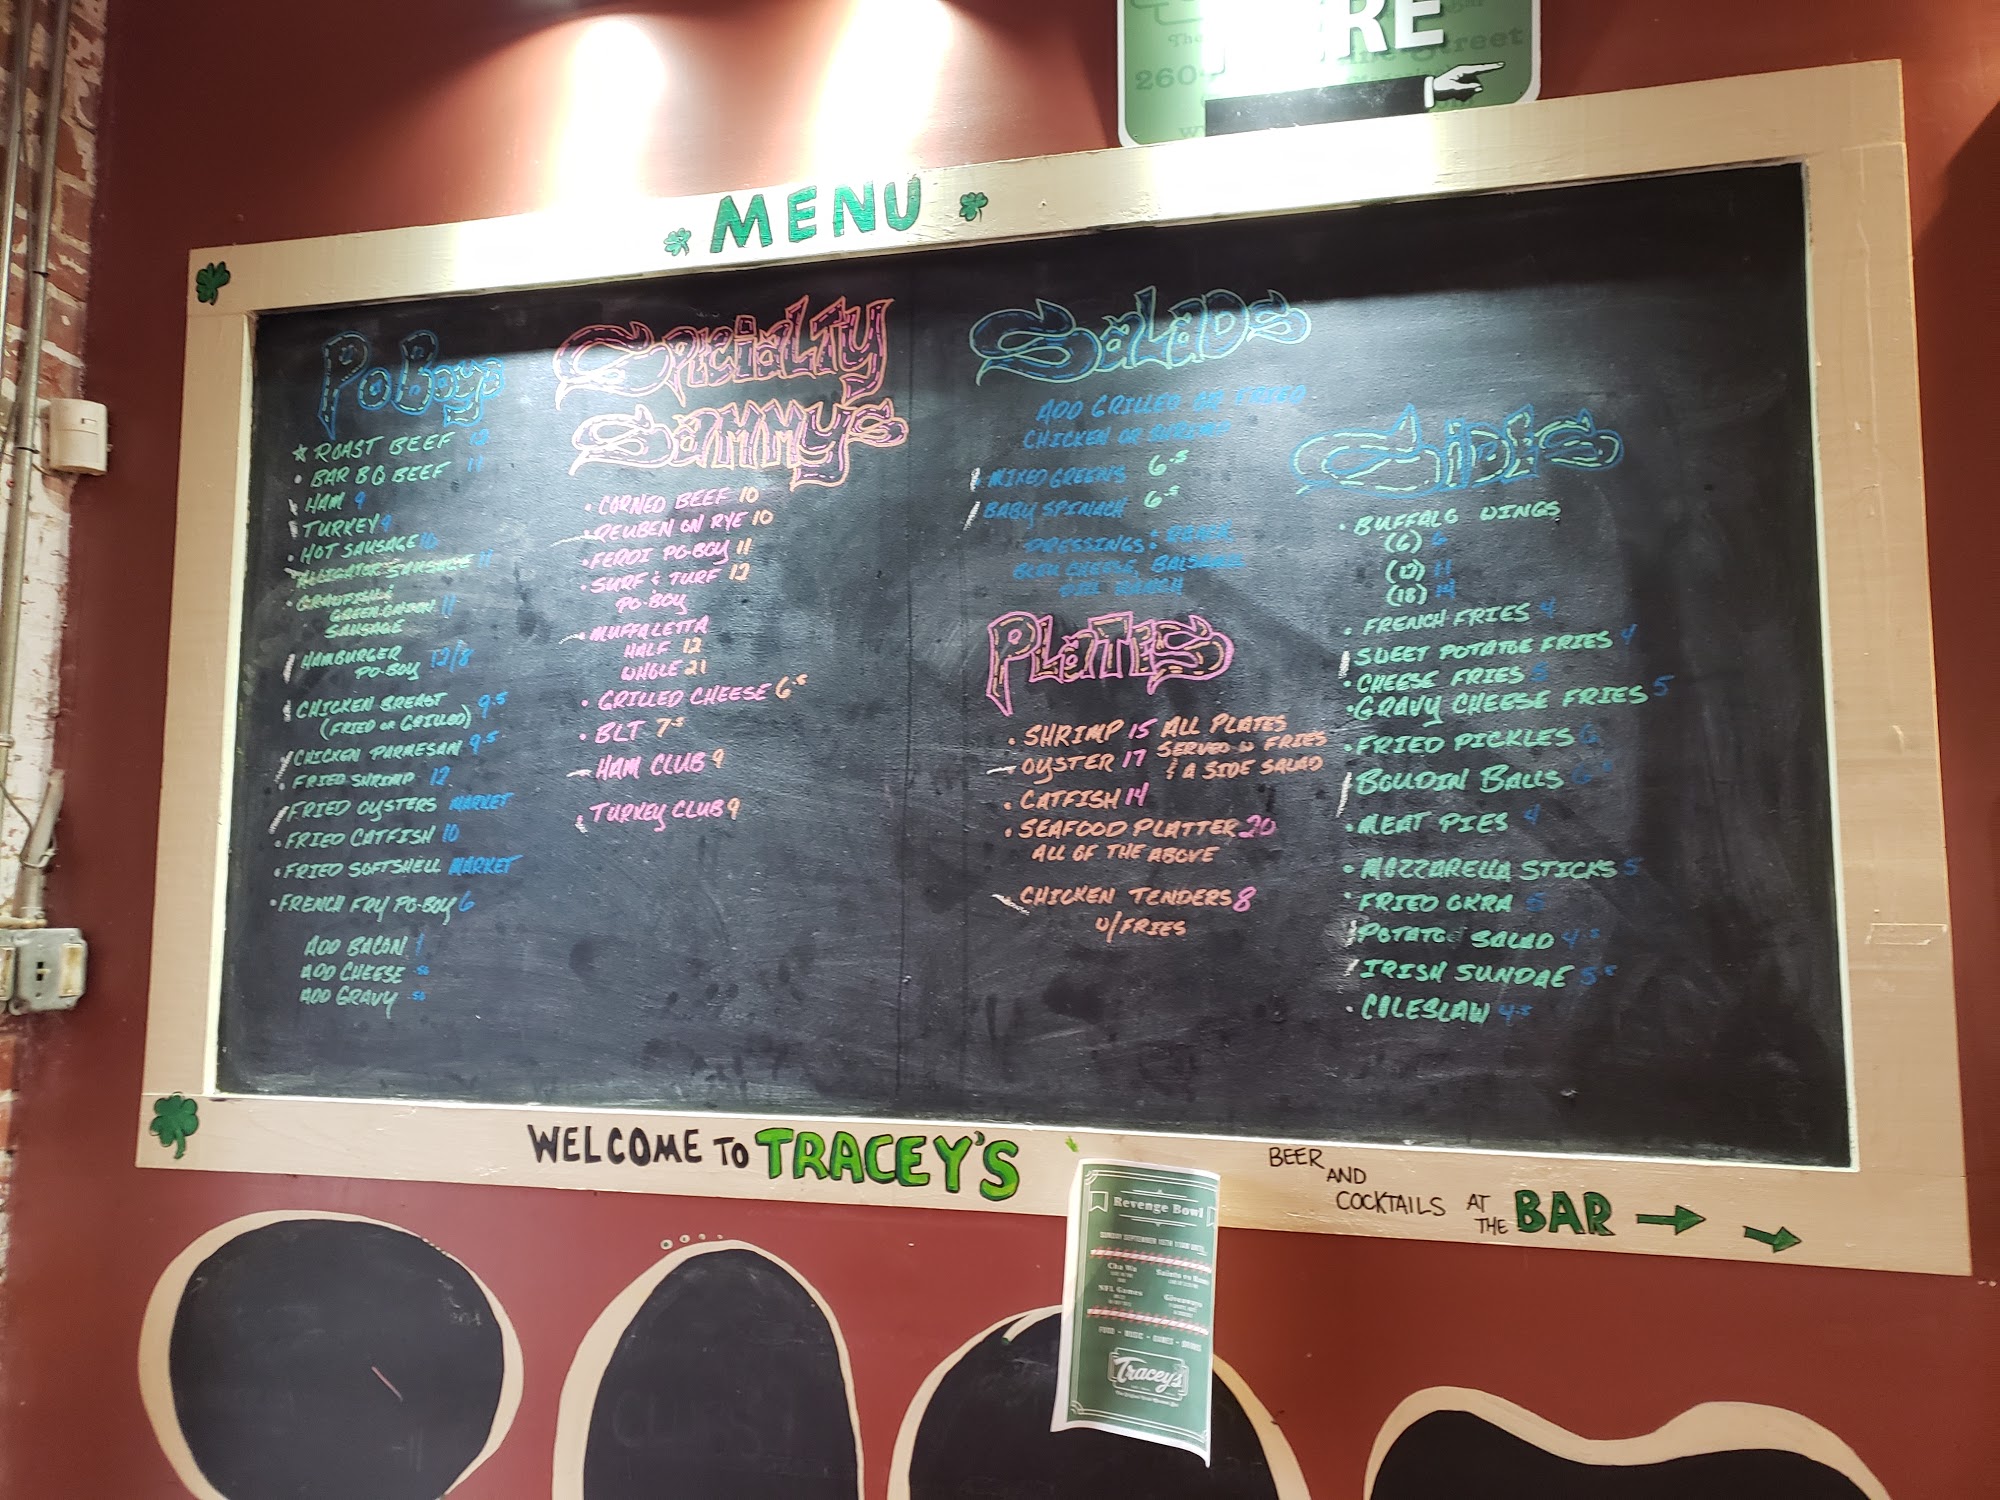 RE
The
Street
260
MENU
Po Boys
ROAST BEEF 12
BAR BQ BEEF 11
HAM 9
TURKEY 9
HOT SAUSAGE 10
ALLIGATOR SAUSAGE 11
CRAWFISH &
GREEN ONION 11
SAUSAGE
HAMBURGER
PO-BOY 12/8
CHICKEN BREAST 9.5
(FRIED OR GRILLED)
CHICKEN PARMESAN 9.5
FRIED SHRIMP 12
FRIED OYSTERS MARKET
FRIED CATFISH 10
FRIED SOFTSHELL MARKET
FRENCH FRY PO-BOY 6
ADD BACON 1
ADD CHEESE .50
ADD GRAVY .50
SPECIALTY
SAMMYS
CORNED BEEF 10
REUBEN ON RYE 10
FERDI PO-BOY 11
SURF & TURF 12
PO-BOY
MUFFALETTA
HALF 12
WHOLE 21
GRILLED CHEESE 6.5
BLT 7.5
HAM CLUB 9
TURKEY CLUB 9
SALADS
ADD GRILLED OR FRIED
CHICKEN OR SHRIMP
MIXED GREENS 6.5
BABY SPINACH 6.5
DRESSINGS:
BLEU CHEESE, BALSAMIC
RANCH
PLATES
SHRIMP 15 ALL PLATES
SERVED W FRIES
OYSTER 17 & A SIDE SALAD
CATFISH 14
SEAFOOD PLATTER 20
ALL OF THE ABOVE
CHICKEN TENDERS 8
W/FRIES
SIDES
BUFFALO WINGS
(6) 6
(12) 11
(18) 14
FRENCH FRIES 4
SWEET POTATOE FRIES 4
CHEESE FRIES 5
GRAVY CHEESE FRIES 5
FRIED PICKLES 6
BOUDIN BALLS 6.5
MEAT PIES 4
MOZZARELLA STICKS 5
FRIED OKRA 5
POTATOE SALAD 4.5
IRISH SUNDAE 5.5
COLESLAW 4.5
WELCOME TO TRACEY'S
BEER AND
COCKTAILS AT
THE BAR
Revenge Bowl
SUNDAY SEPTEMBER 15TH
Cha Wa
Saints vs Rams
NFL Games
Giveaways
FOOD • MUSIC • GAMES • DRINKS
Tracey's